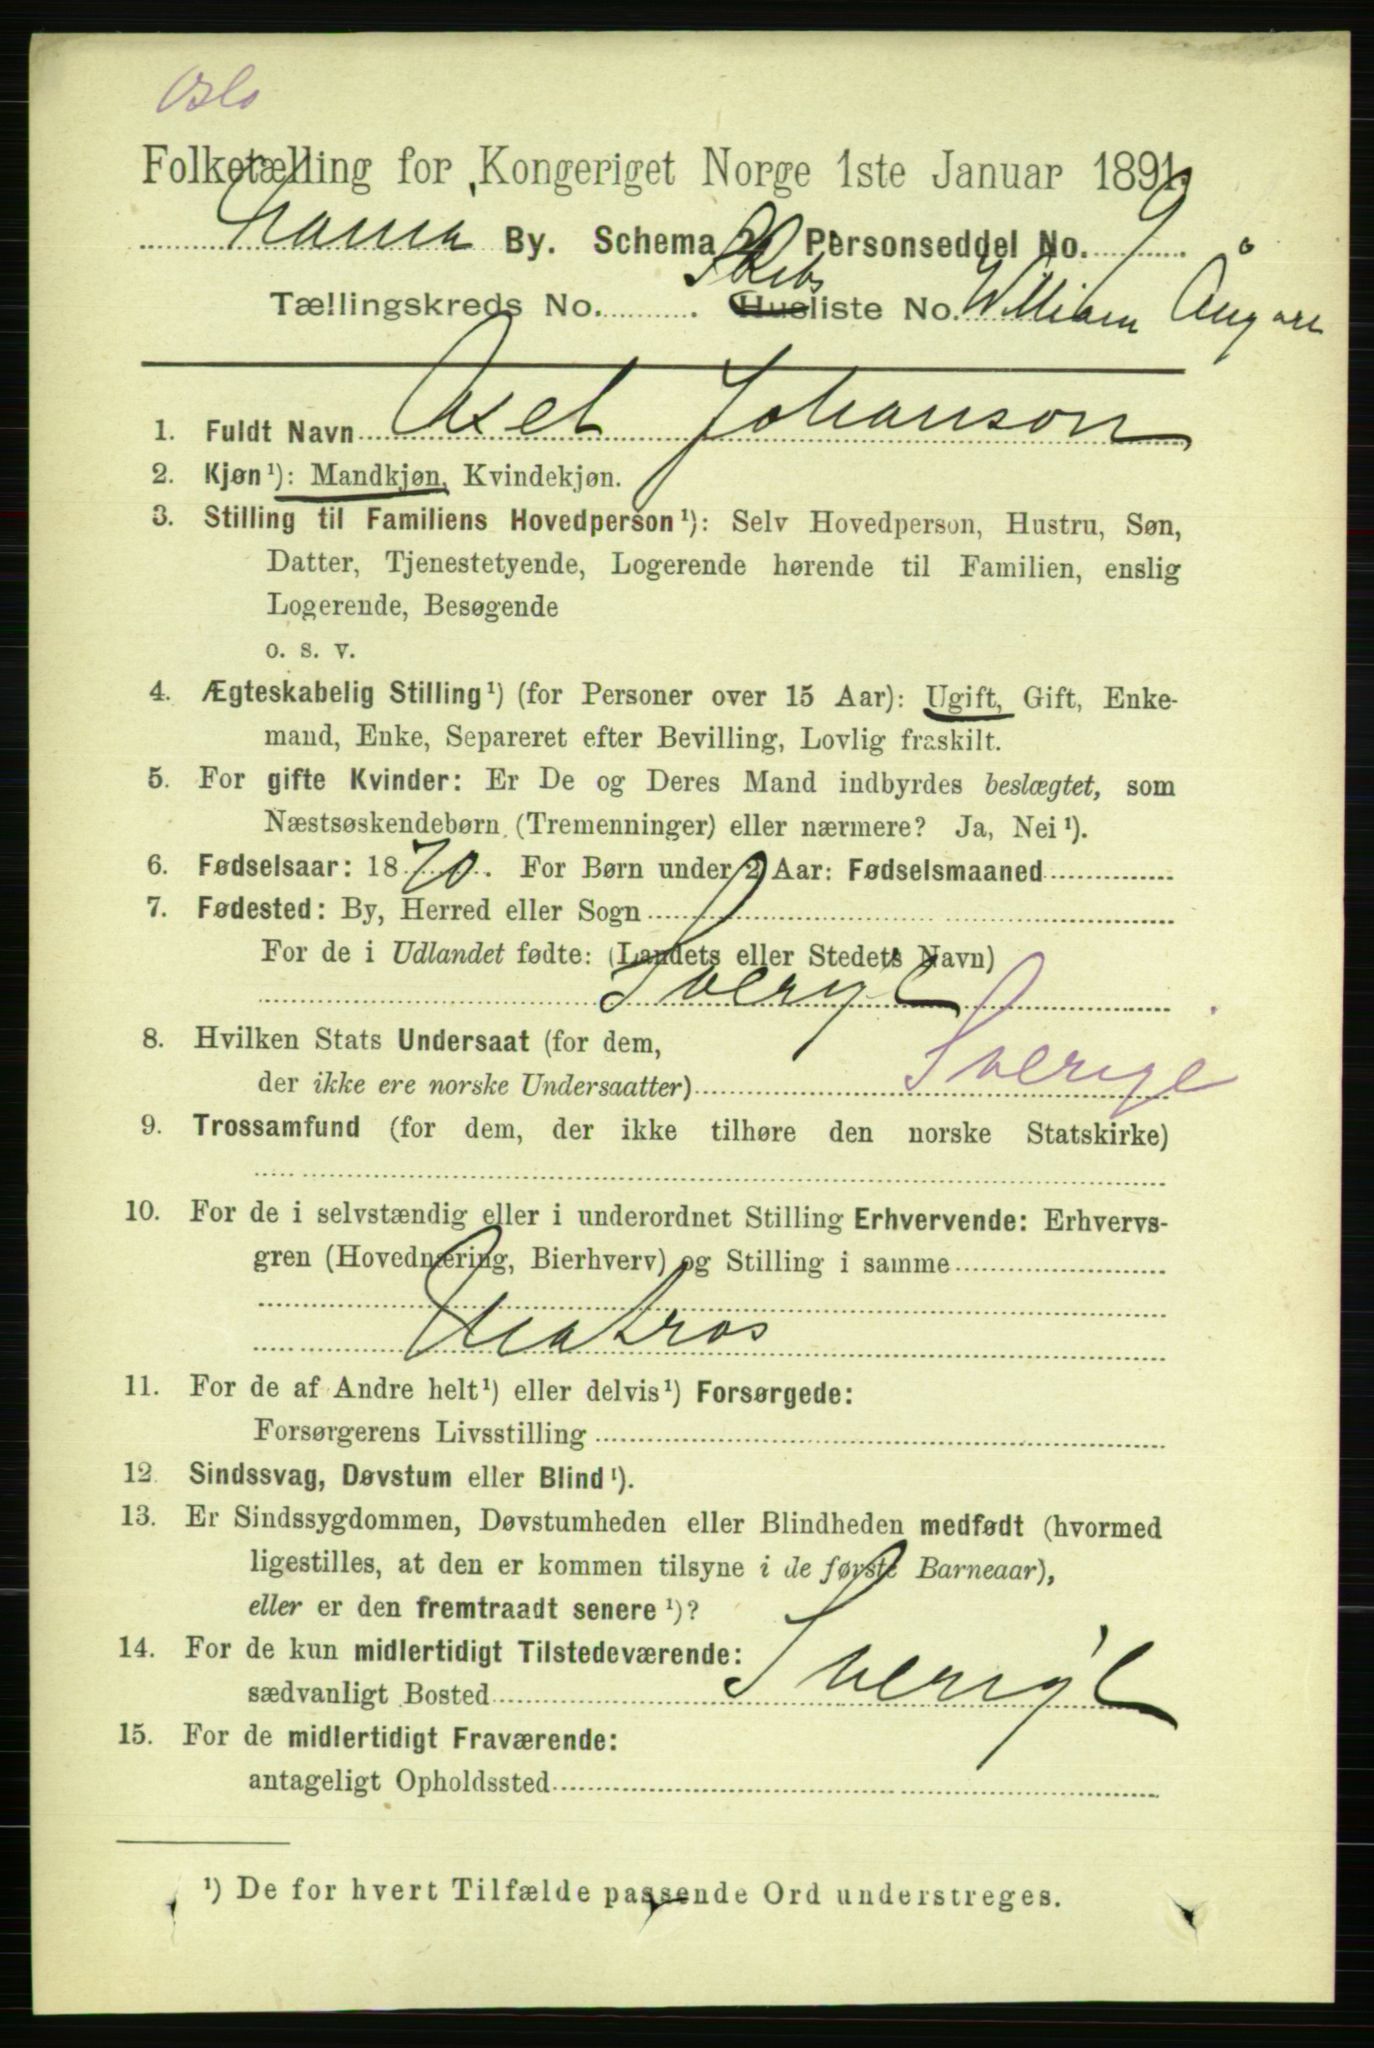 Oslo
Folketælling for Kongeriget Norge 1ste Januar 1891.
By. Schema 2. Personseddel No. 9.
Tællingskreds No. . Skibsliste No. William
1. Fuldt Navn Axel Johanson
2. Kjøn ¹): Mandkjøn, Kvindekjøn.
3. Stilling til Familiens Hovedperson ¹): Selv Hovedperson, Hustru, Søn,
Datter, Tjenestetyende, Logerende hørende til Familien, enslig
Logerende, Besøgende
o. s. v.
4. Ægteskabelig Stilling ¹) (for Personer over 15 Aar): Ugift, Gift, Enke-
mand, Enke, Separeret efter Bevilling, Lovlig fraskilt.
5. For gifte Kvinder: Er De og Deres Mand indbyrdes beslægtet, som
Næstsøskendebørn (Tremenninger) eller nærmere? Ja, Nei ¹).
6. Fødselsaar: 1870. For Børn under 2 Aar: Fødselsmaaned
7. Fødested: By, Herred eller Sogn
For de i Udlandet fødte: (Landets eller Stedets Navn)
Sverige
8. Hvilken Stats Undersaat (for dem,
der ikke ere norske Undersaatter) Sverige
9. Trossamfund (for dem, der ikke tilhøre den norske Statskirke)
10. For de i selvstændig eller i underordnet Stilling Erhvervende: Erhvervs-
gren (Hovednæring, Bierhverv) og Stilling i samme
Matros
11. For de af Andre helt ¹) eller delvis ¹) Forsørgede:
Forsørgerens Livsstilling
12. Sindssvag, Døvstum eller Blind ¹).
13. Er Sindssygdommen, Døvstumheden eller Blindheden medfødt (hvormed
ligestilles, at den er kommen tilsyne i de første Barneaar),
eller er den fremtraadt senere ¹)?
14. For de kun midlertidigt Tilstedeværende:
sædvanligt Bosted Sverige
15. For de midlertidigt Fraværende:
antageligt Opholdssted
¹) De for hvert Tilfælde passende Ord understreges.